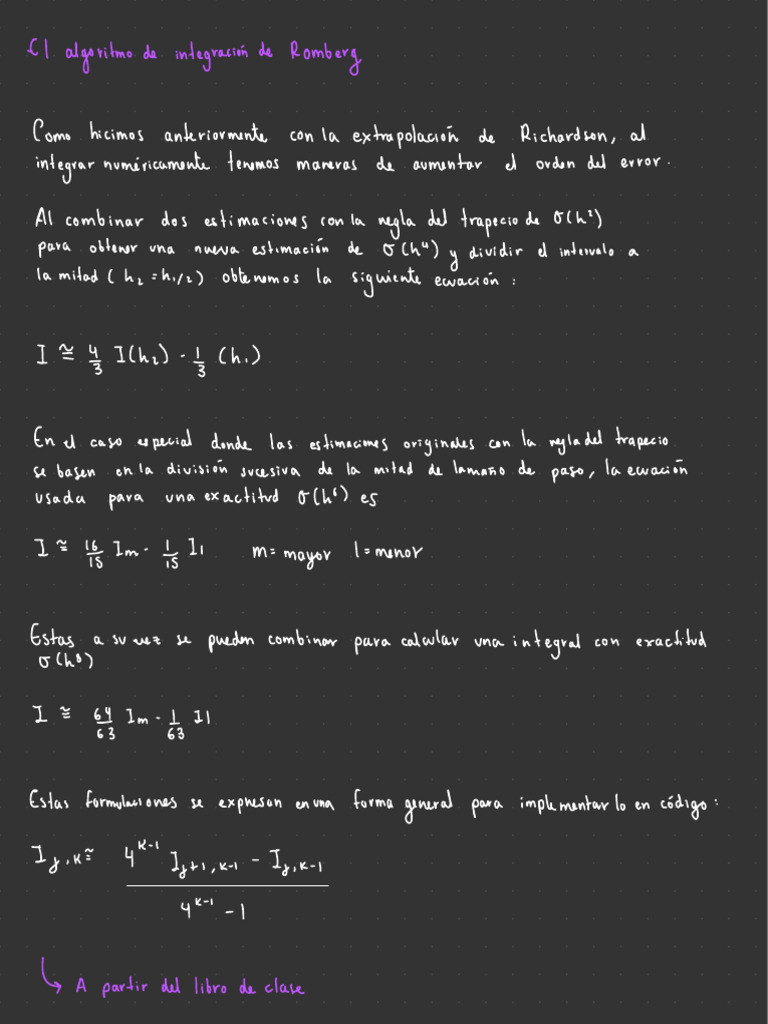 El algoritmo de integración de Romberg
Como hicimos anteriormente con la extrapolación de Richardson, al
integrar numéricamente tenemos maneras de aumentar el orden del error.
Al combinar dos estimaciones con la regla del trapecio de σ(h²)
para obtener una nueva estimación de σ(h⁴) y dividir el intervalo a
la mitad (h₂ = h₁/2) obtenemos la siguiente ecuación:
I ≅ 4/3 I(h₂) - 1/3 (h₁)
En el caso especial donde las estimaciones originales con la regla del trapecio
se basen en la división sucesiva de la mitad de tamaño de paso, la ecuación
usada para una exactitud σ(h⁶) es
I ≅ 16/15 Im - 1/15 Il m = mayor l = menor
Estas a su vez se pueden combinar para calcular una integral con exactitud
σ(h⁸)
I ≅ 64/63 Im - 1/63 Il
Estas formulaciones se expresan en una forma general para implementarlo en código:
I_{j,k} ≅ (4^{k-1} I_{j+1,k-1} - I_{j,k-1}) / (4^{k-1} - 1)
↳ A partir del libro de clase